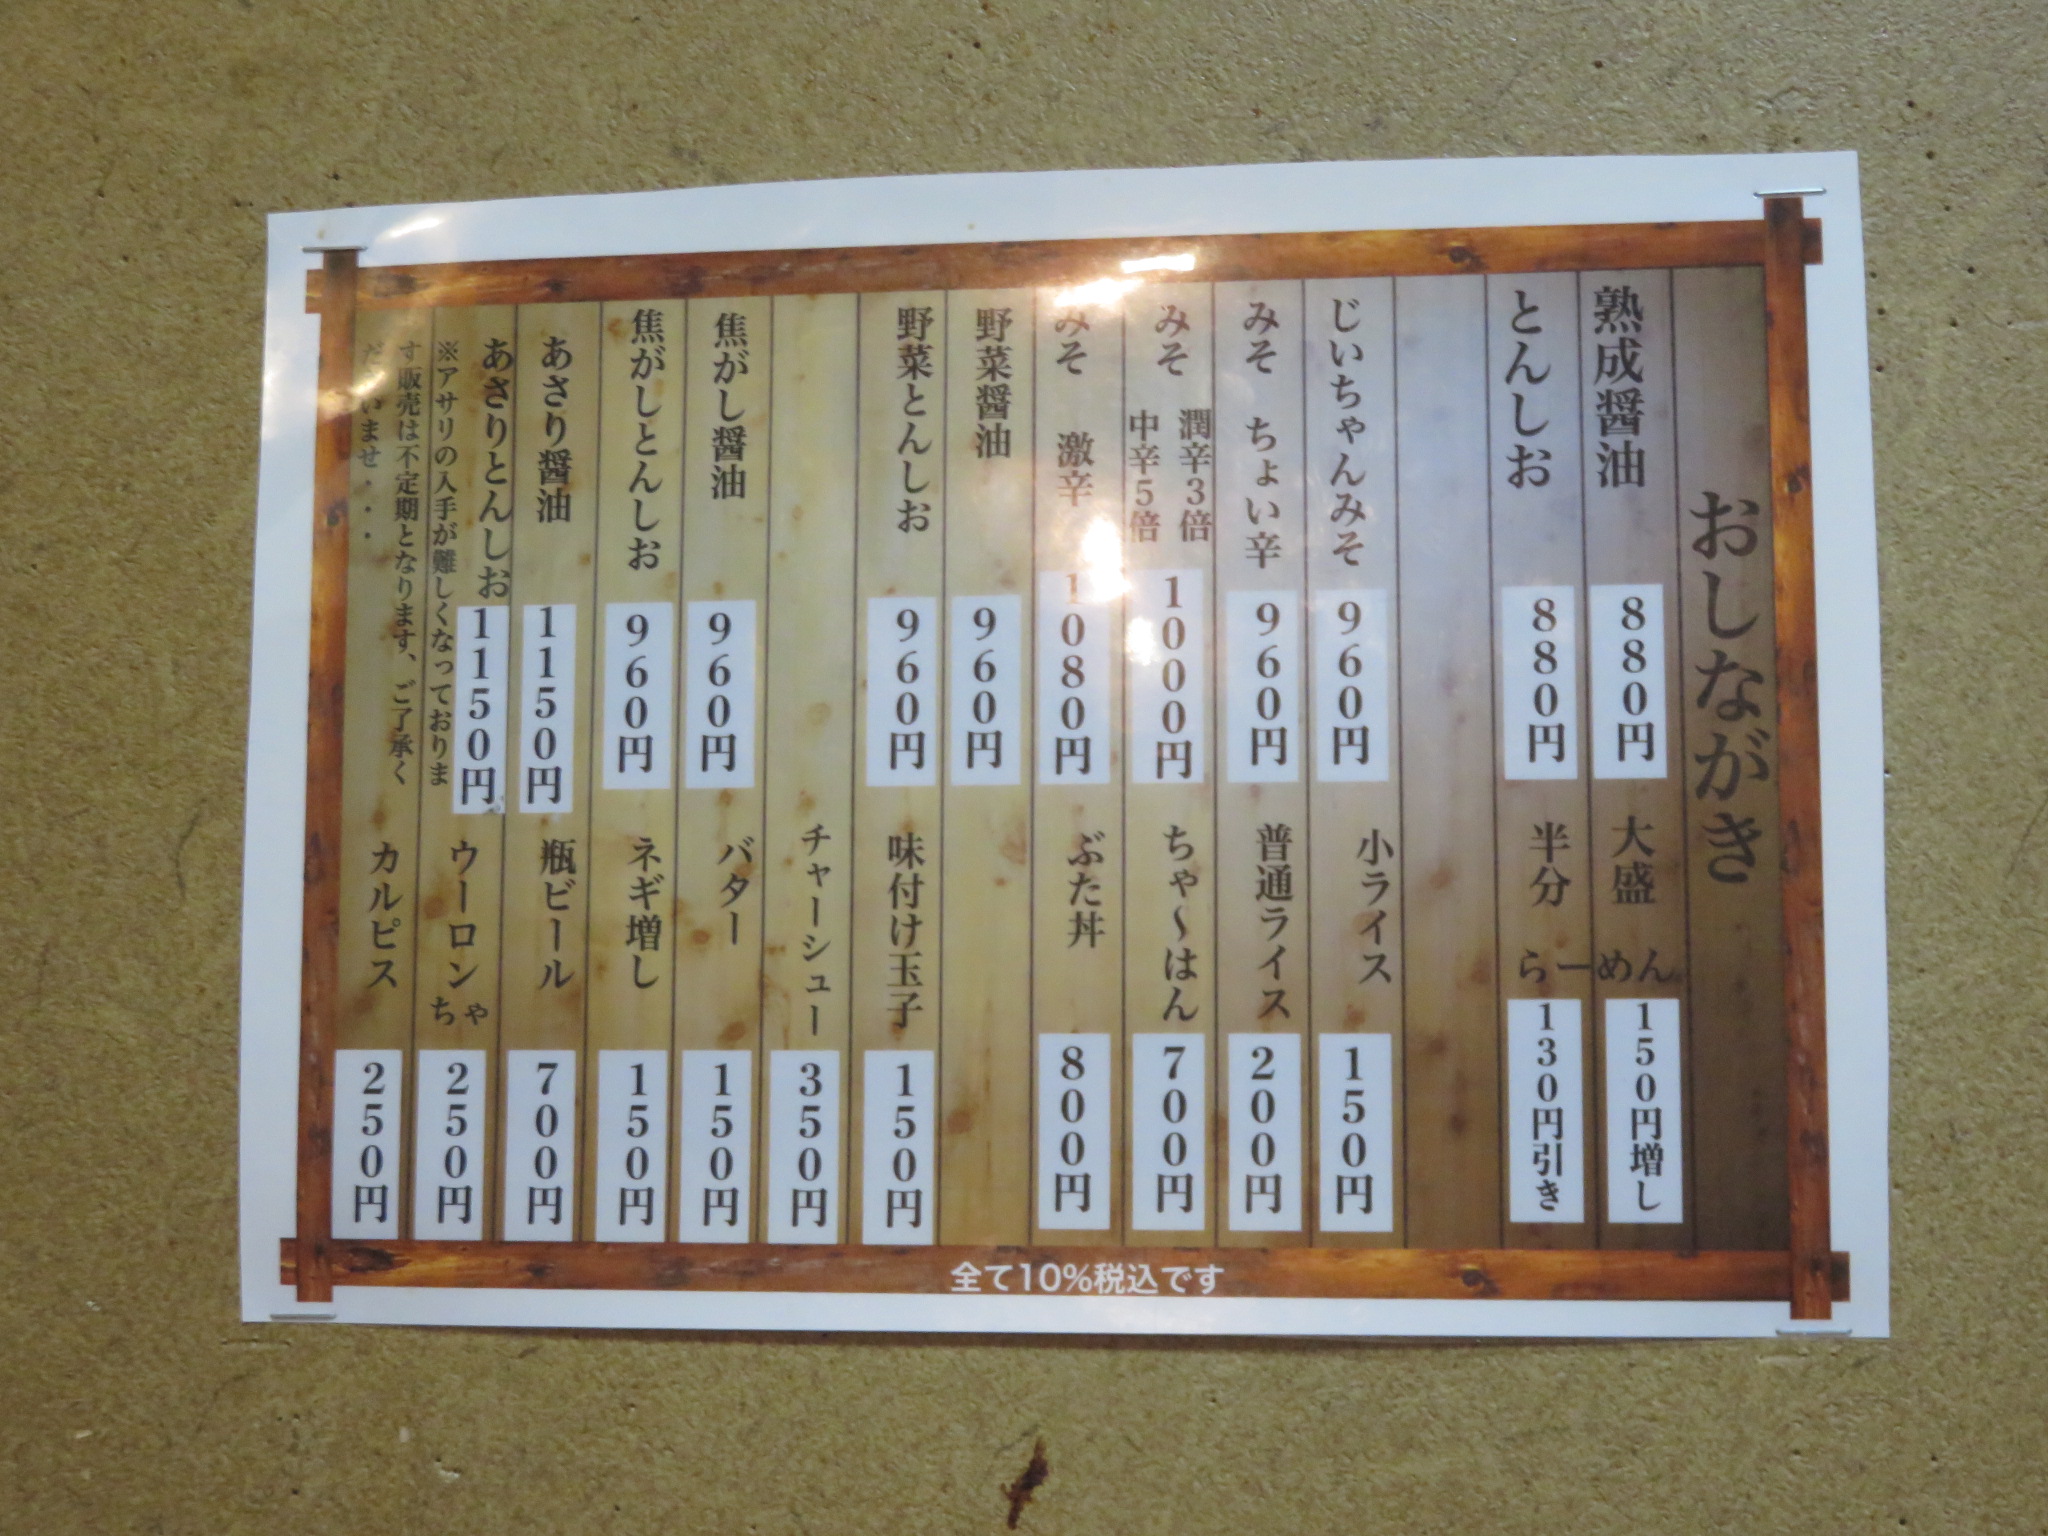 おしながき
熟成醤油 880円
とんしお 880円
じいちゃんみそ 960円
みそ ちょい辛 960円
みそ 潤辛3倍 中辛5倍 1000円
みそ 激辛 1080円
野菜醤油 960円
野菜とんしお 960円
焦がし醤油 960円
焦がしとんしお 960円
あさり醤油 1150円
あさりとんしお 1150円
※アサリの入手が難しくなっておりま
す販売は不定期となります、ご了承く
だ いませ・・・
大盛 らーめん 150円増し
半分 130円引き
小ライス 150円
普通ライス 200円
ちゃ～はん 700円
ぶた丼 800円
味付け玉子 150円
チャーシュー 350円
バター 150円
ネギ増し 150円
瓶ビール 700円
ウーロンちゃ 250円
カルピス 250円
全て10%税込です